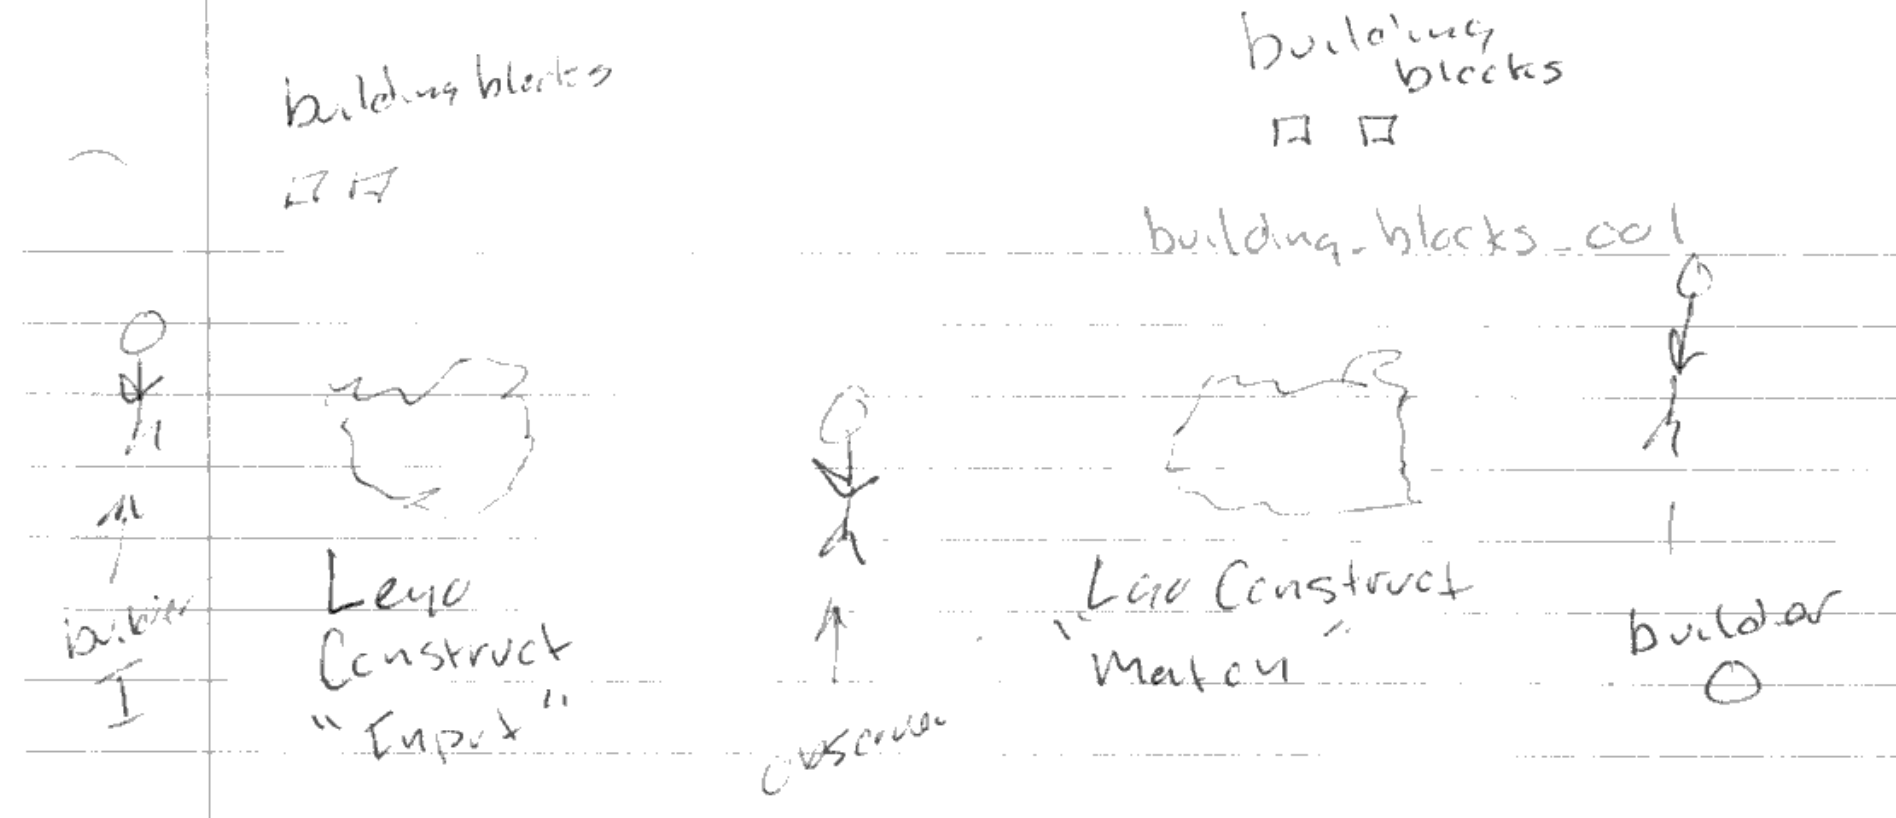 building blocks
building
blocks
building_blocks_001
builder
I
Lego
Construct
"Input"
observer
Lego Construct
"Match"
builder
O